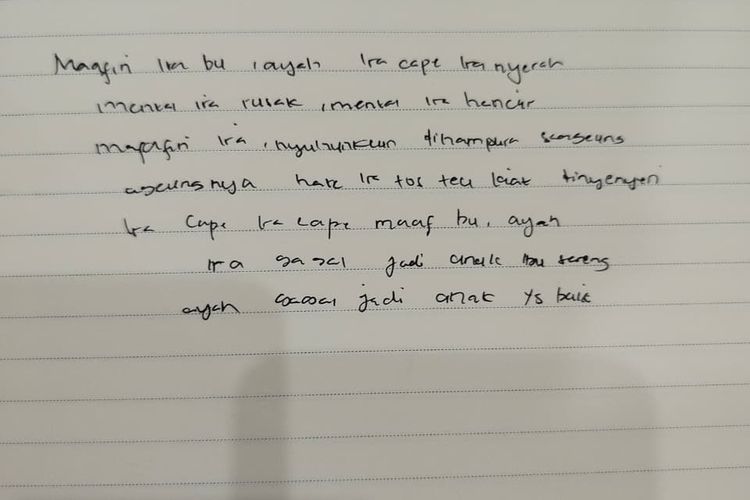 Maafin Ira bu , ayah Ira cape Ira nyerah
mental ira rusak , mental Ira hancur
maafin Ira , nyuhunkeun dihampura
ageungnya hate Ira tos teu kiat
Ira Cape Ira cape maaf bu, ayah
Ira gagal jadi anak ibu sareng
ayah gagal jadi anak yg baik